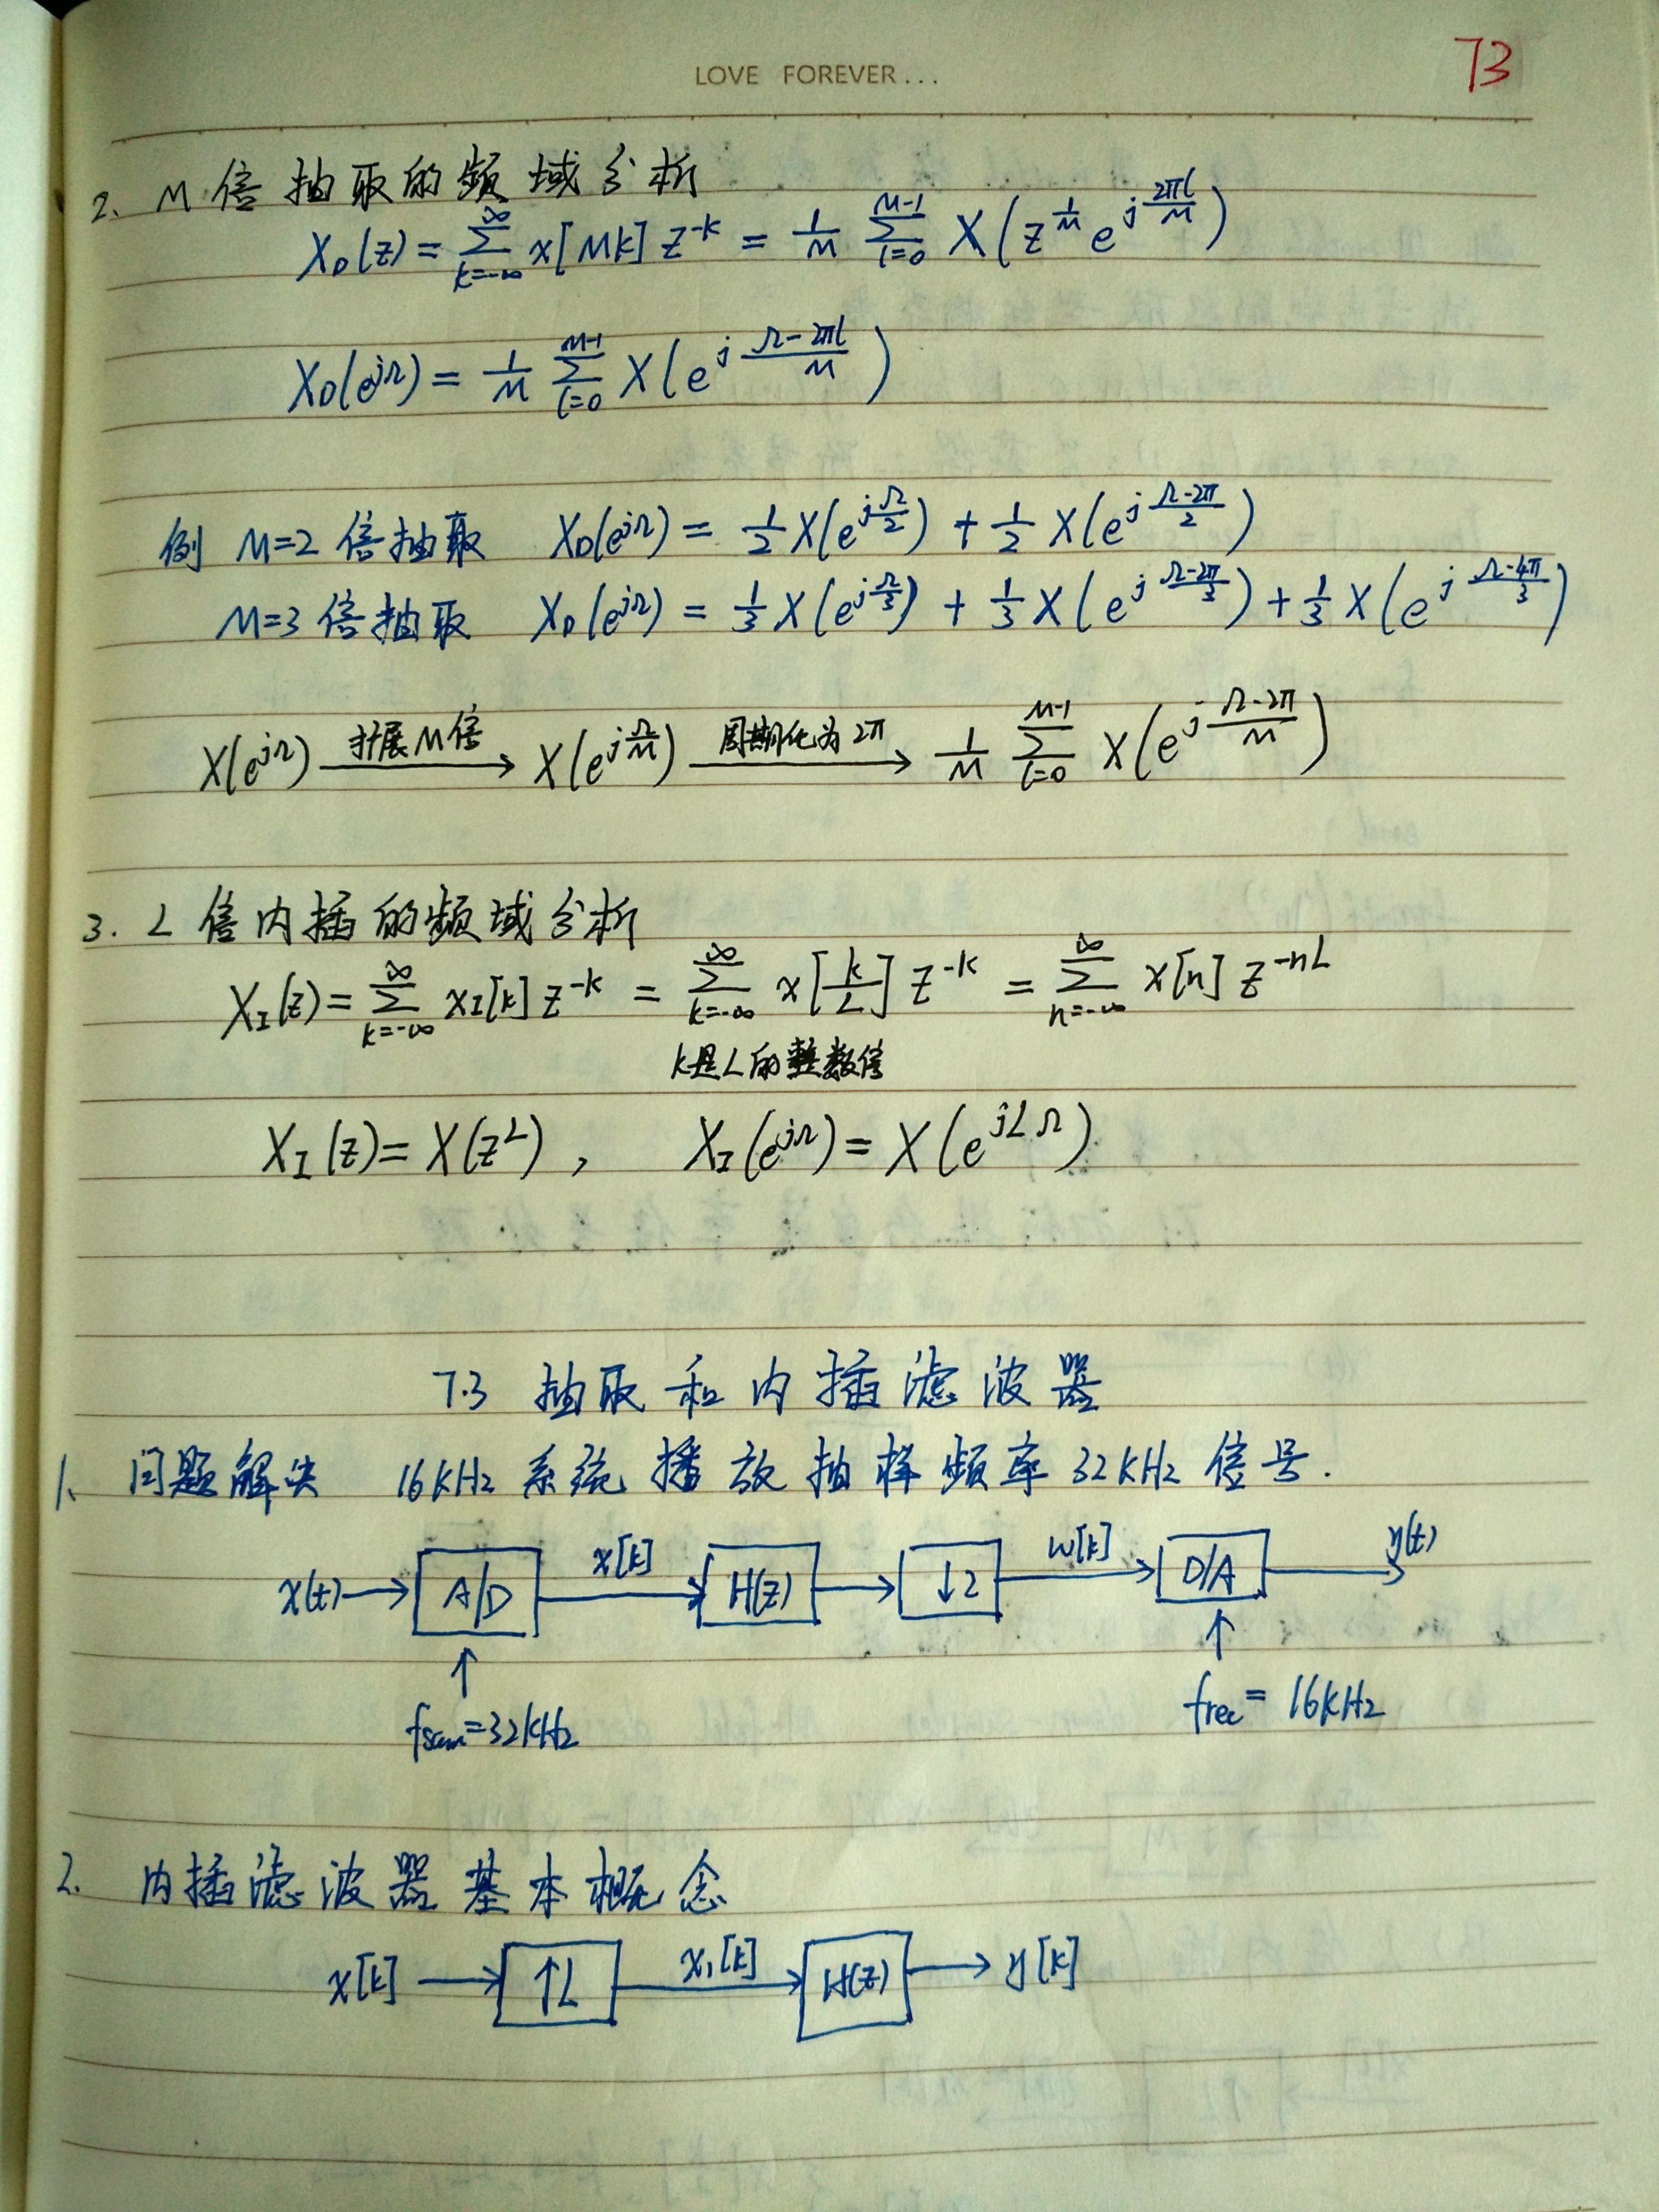 LOVE FOREVER...
73
2. M倍抽取的频域分析
X_D(z) = \sum_{k=-∞}^{∞} x[Mk] z^{-k} = \frac{1}{M} \sum_{l=0}^{M-1} X(z^{\frac{1}{M}} e^{j\frac{2πl}{M}})
X_D(e^{jΩ}) = \frac{1}{M} \sum_{l=0}^{M-1} X(e^{j\frac{Ω-2πl}{M}})
例 M=2倍抽取 X_D(e^{jΩ}) = \frac{1}{2} X(e^{j\frac{Ω}{2}}) + \frac{1}{2} X(e^{j\frac{Ω-2π}{2}})
M=3倍抽取 X_D(e^{jΩ}) = \frac{1}{3} X(e^{j\frac{Ω}{3}}) + \frac{1}{3} X(e^{j\frac{Ω-2π}{3}}) + \frac{1}{3} X(e^{j\frac{Ω-4π}{3}})
X(e^{jΩ}) 扩展M倍 → X(e^{j\frac{Ω}{M}}) 周期化为2π → \frac{1}{M} \sum_{l=0}^{M-1} X(e^{j\frac{Ω-2π}{M}})
3. L倍内插的频域分析
X_I(z) = \sum_{k=-∞}^{∞} x_I[k] z^{-k} = \sum_{k=-∞}^{∞} x[\frac{k}{L}] z^{-k} = \sum_{n=-∞}^{∞} x[n] z^{-nL}
k是L的整数倍
X_I(z) = X(z^L), X_I(e^{jΩ}) = X(e^{jLΩ})
7.3 抽取和内插滤波器
1. 问题解决 16KHz系统播放抽样频率32KHz信号.
x(t) → A/D x[k] → H(z) → ↓2 w[k] → D/A → y(t)
↑ ↑
fsam=32KHz frec=16KHz
2. 内插滤波器基本概念
x[k] → ↑L x_1[k] → H(z) → y[k]